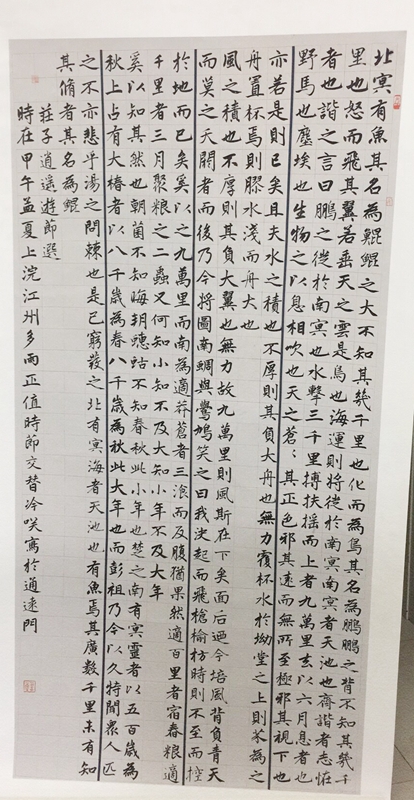 北冥有魚其名為鯤鯤之大不知其幾千里也化而為鳥其名為鵬鵬之背不知其幾千
里也怒而飛其翼若垂天之雲是鳥也海運則將徙於南冥南冥者天池也齊諧者志怪
者也諧之言曰鵬之徙於南冥也水擊三千里摶扶搖而上者九萬里去以六月息者也
野馬也塵埃也生物之以息相吹也天之蒼〻其正色邪其遠而無所至極邪其視下也
亦若是則已矣且夫水之積也不厚則其負大舟也無力覆杯水於坳堂之上則芥為之
舟置杯焉則膠水淺而舟大也
風之積也不厚則其負大翼也無力故九萬里則風斯在下矣而後迺今培風背負青天
而莫之夭閼者而後乃今將圖南蜩與鷽鳩笑之曰我決起而飛槍榆枋時則不至而控
於地而已矣奚以之九萬里而南為適莽蒼者三湌而反腹猶果然適百里者宿舂糧適
千里者三月聚糧之二蟲又何知小知不及大知小年不及大年
奚以知其然也朝菌不知晦朔蟪蛄不知春秋此小年也楚之南有冥靈者以五百歲為
秋上古有大椿者以八千歲為春八千歲為秋此大年也而彭祖乃今以久特聞衆人匹
之不亦悲乎湯之問棘也是已窮髮之北有冥海者天池也有魚焉其廣數千里未有知
其脩者其名為鯤
莊子逍遥遊節選
時在甲午孟夏上浣江州多雨正值時節交替冷咲寫於通遠門